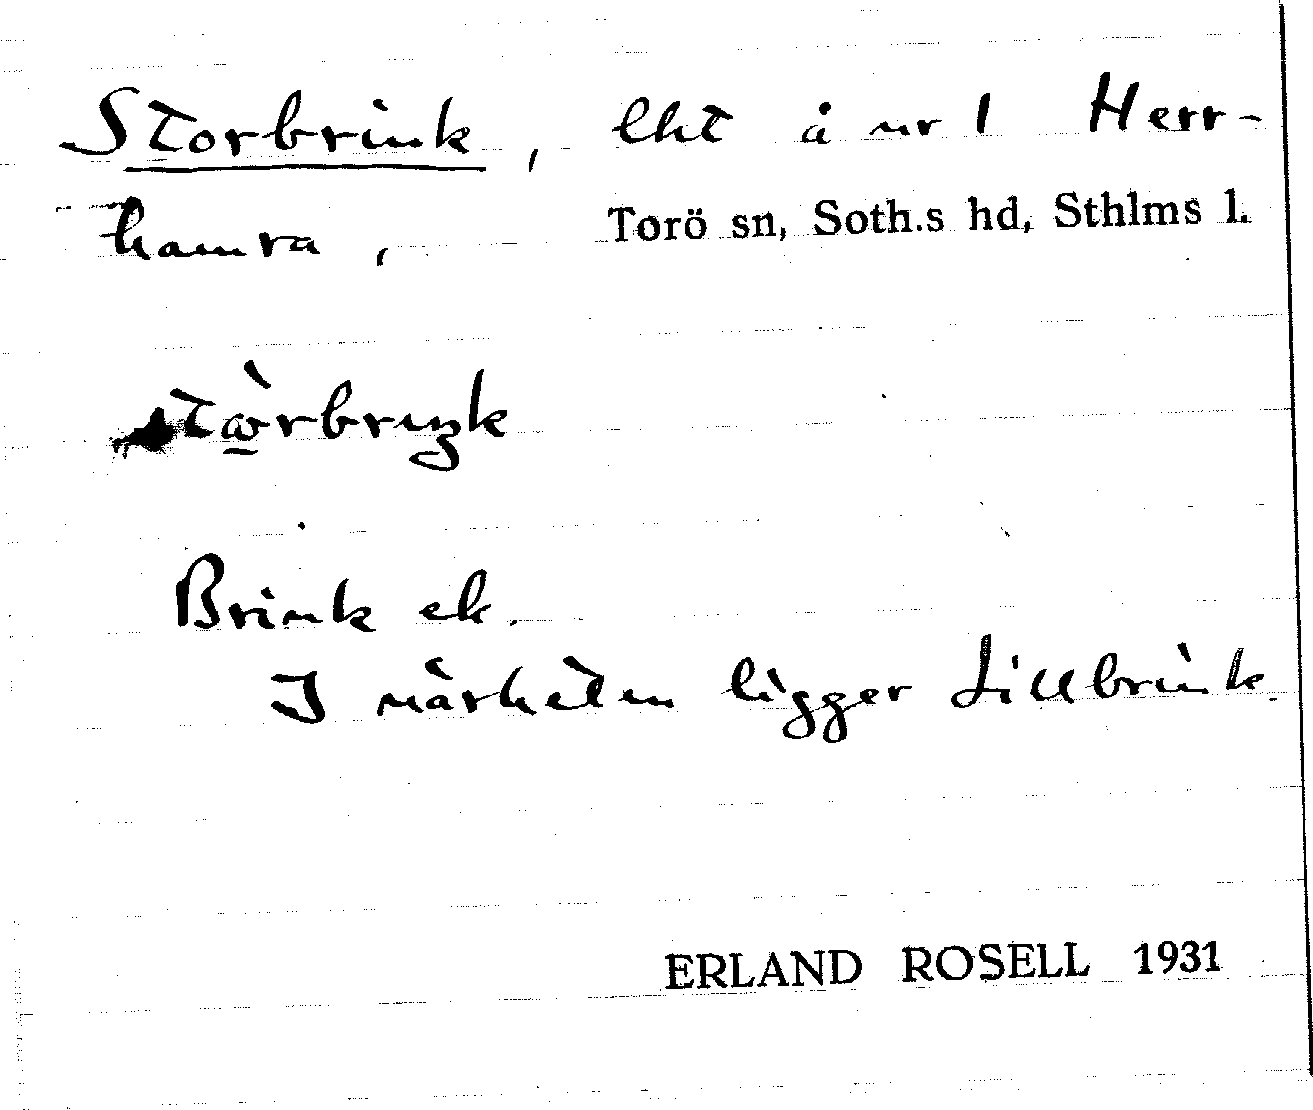 Storbrink, lht å nr 1 Herr-
hamra, Torö sn, Soth.s hd, Sthlms l.
Brink ek.
I närheten ligger Lillbrink.
ERLAND ROSELL 1931